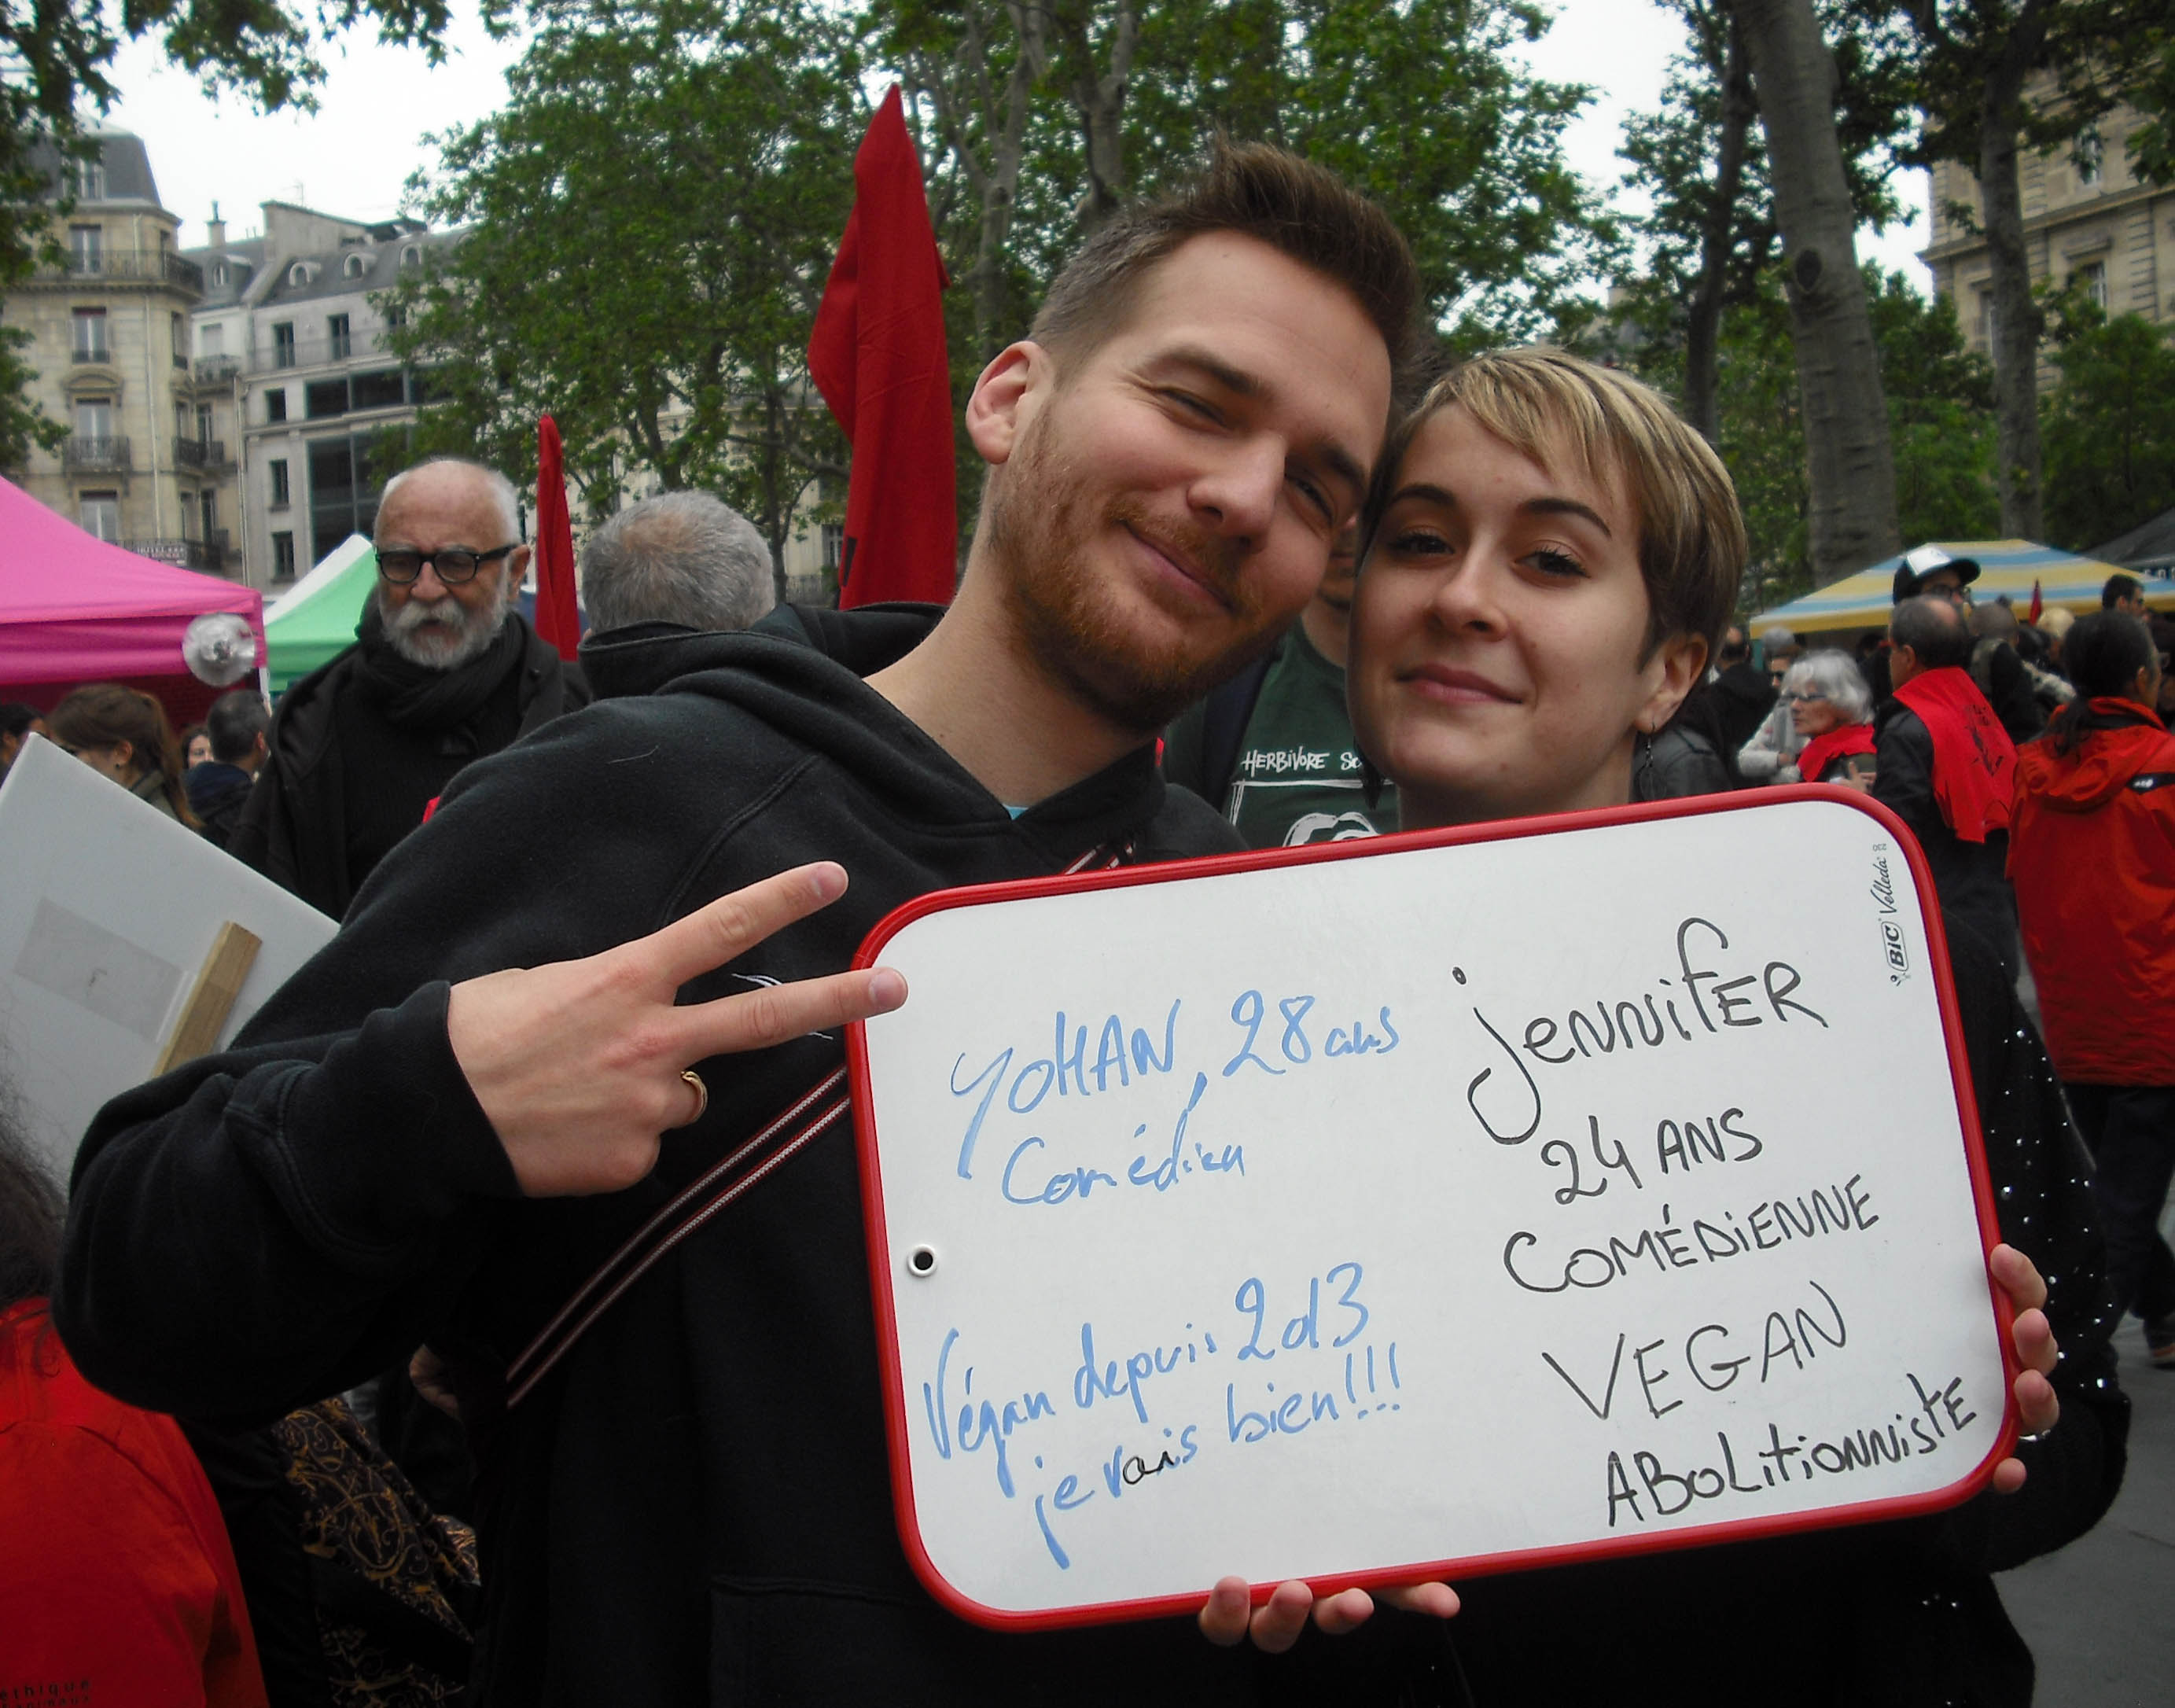 YOHAN, 28 ans
Comédien
Végan depuis 2013
je vais bien!!!
jennifer
24 ANS
COMÉDIENNE
VEGAN
ABOLITIONNISTE
BIC Velleda
HERBIVORE
éthique